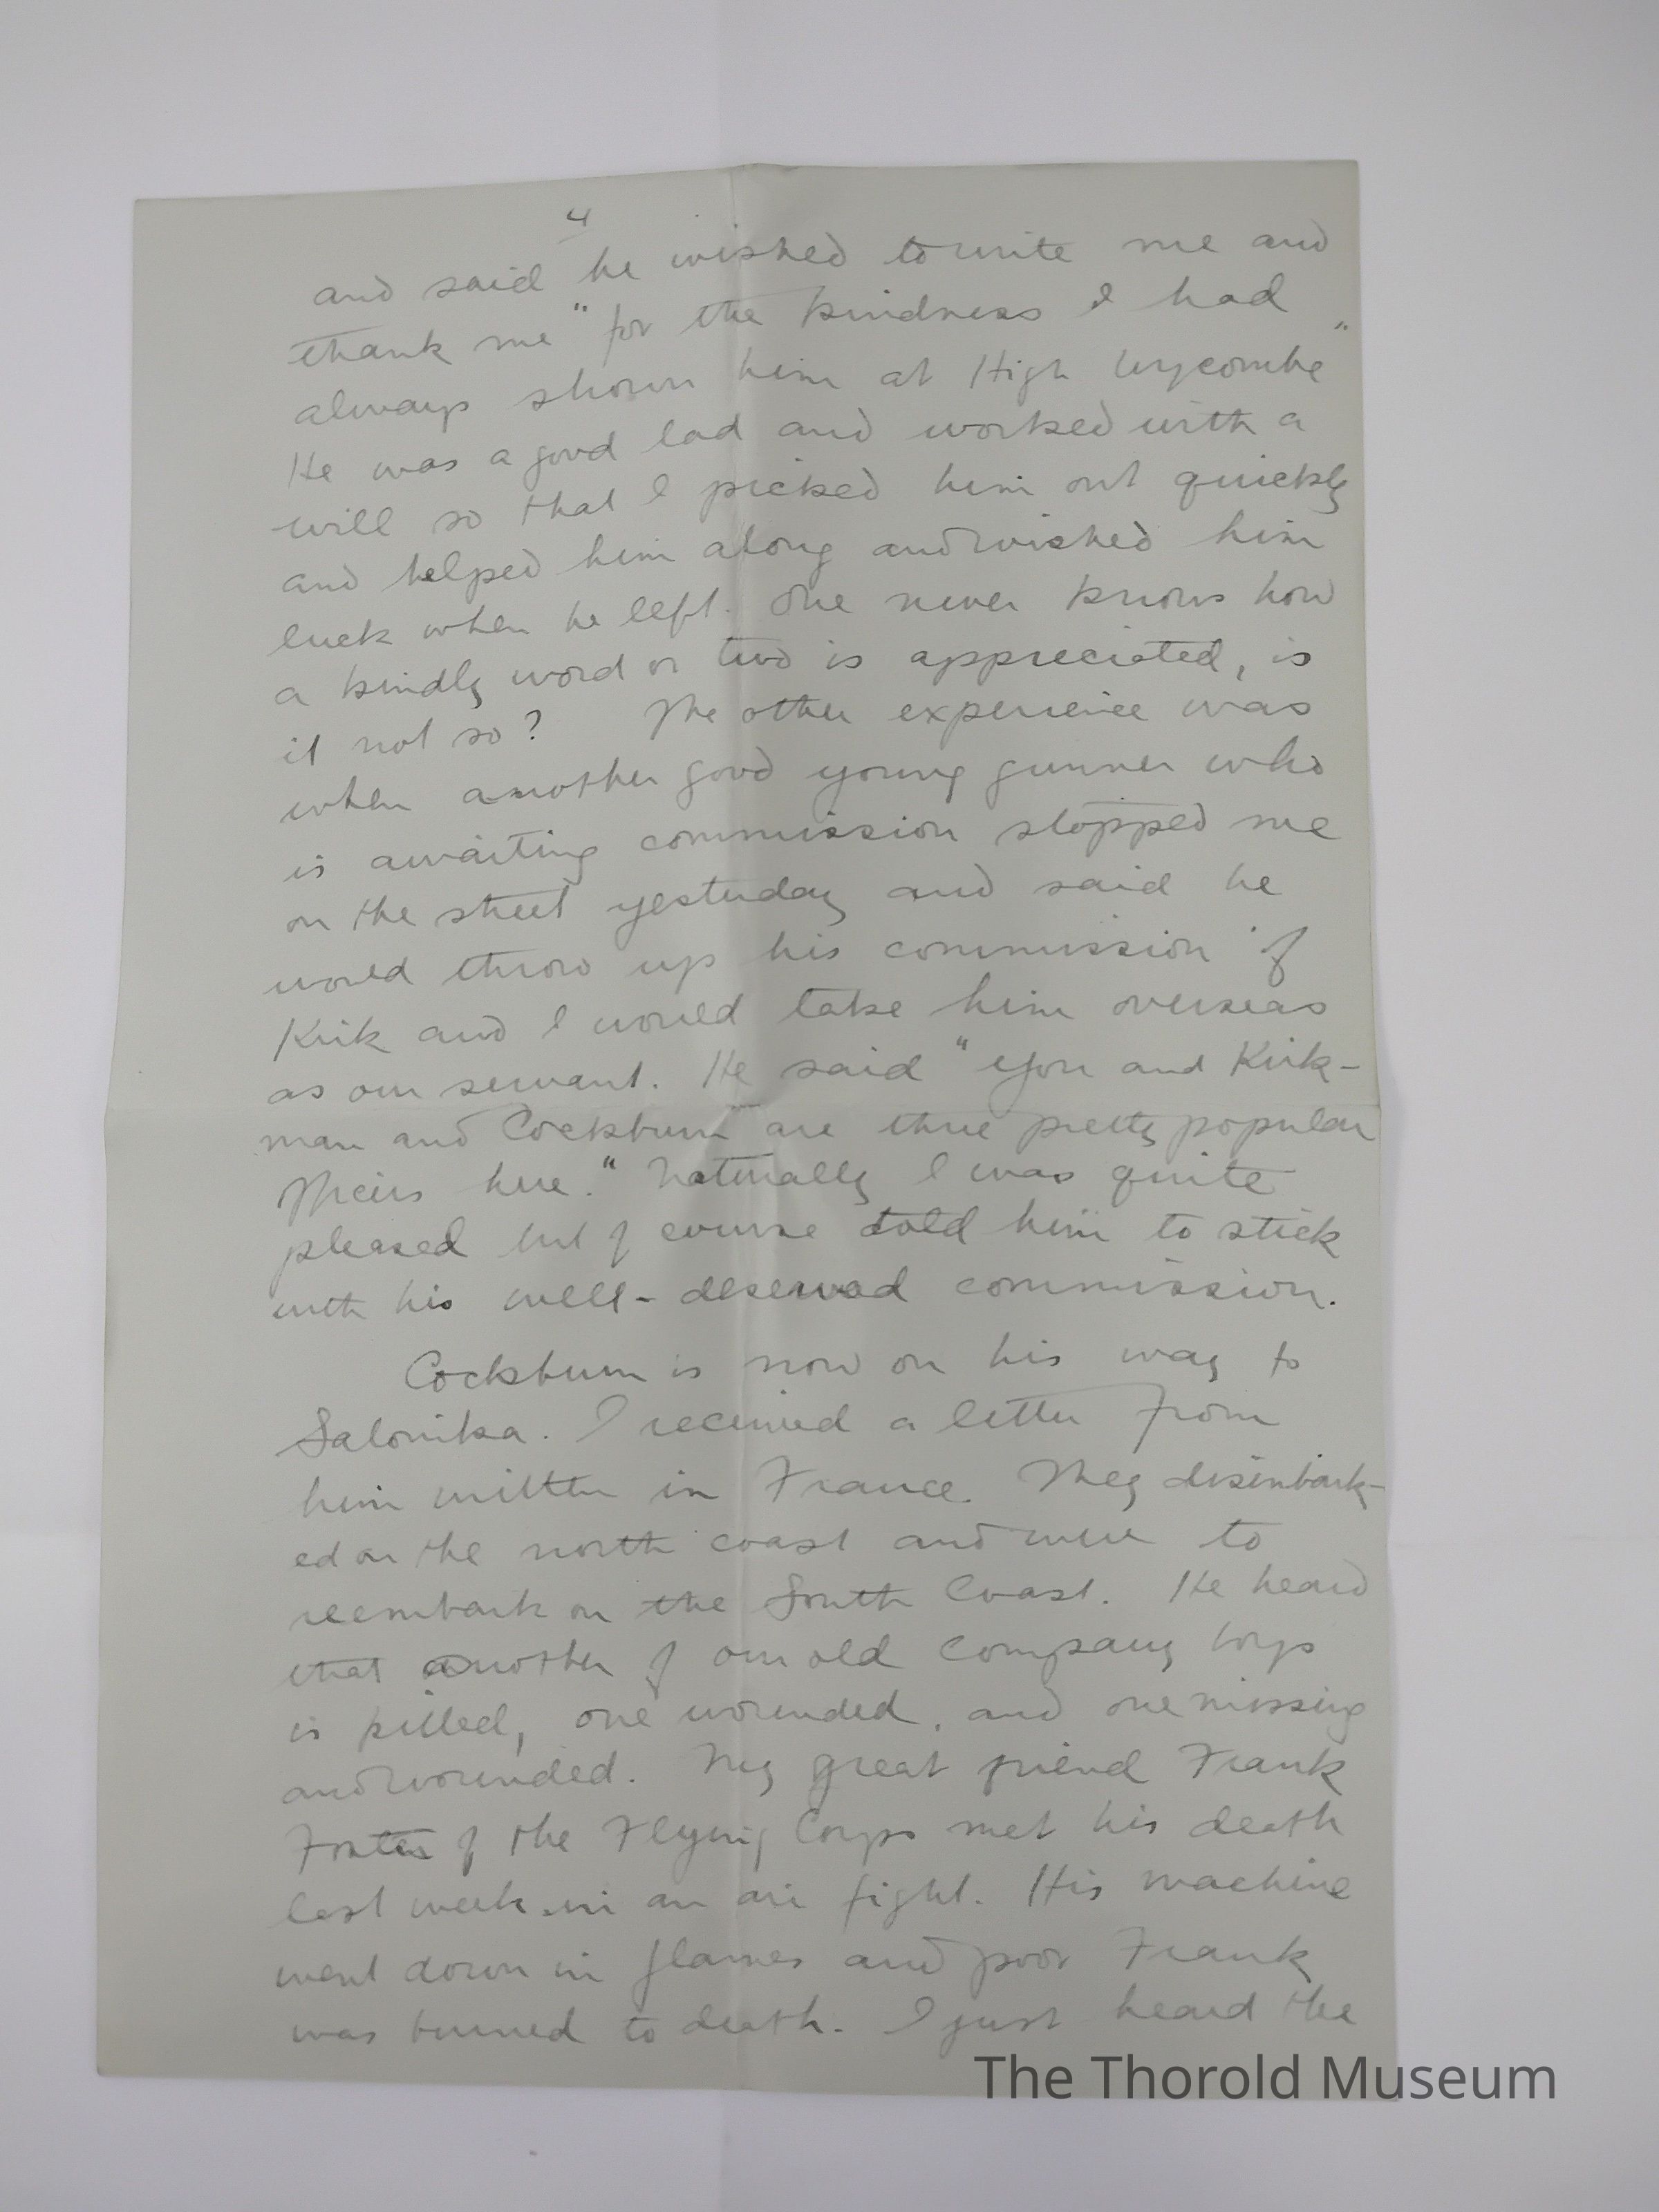 4
and said he wished to write me and
thank me "for the kindness I had
always shown him at High Wycombe"
He was a good lad and worked with a
will so that I picked him out quickly
and helped him along and wished him
luck when he left. One never knows how
a kindly word or two is appreciated, is
it not so? The other experience was
when another good young gunner who
is awaiting commission stopped me
on the street yesterday and said he
would throw up his commission if
Kirk and I would take him overseas
as our servant. He said "You and Kirk-
man and Cockburn are three pretty popular
officers here." Naturally I was quite
pleased but of course told him to stick
with his well-deserved commission.
Cockburn is now on his way to
Salonika. I received a letter from
him written in France. They disembark-
ed on the north coast and were to
reembark on the South Coast. He heard
that another of our old Company boys
is killed, one wounded, and one missing
and wounded. My great friend Frank
of the Flying Corps met his death
last week in an air fight. His machine
went down in flames and poor Frank
was burned to death. I just heard the
The Thorold Museum